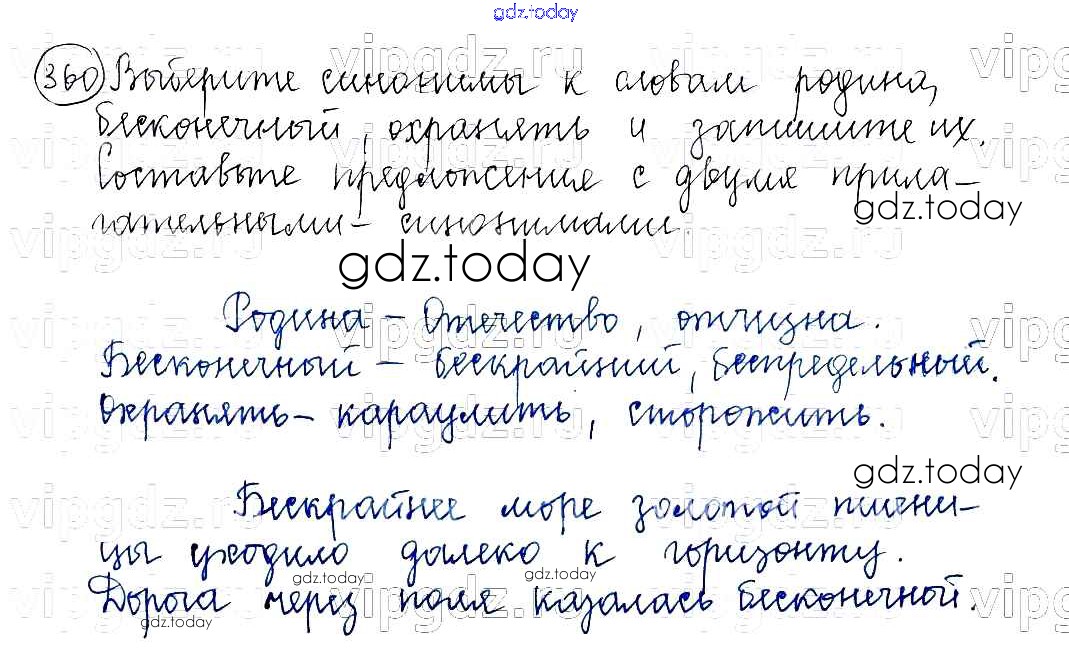 gdz.today
360 Выберите синонимы к словам родина,
бесконечный, охранять и запишите их.
Составьте предложение с двумя прила-
гательными- синонимами.
gdz.today
gdz.today
Родина - Отечество, отчизна.
Бесконечный - бескрайний, беспредельный.
Охранять - караулить, сторожить.
gdz.today
Бескрайнее море золотой пшени-
цы уходило далеко к горизонту.
gdz.today
gdz.today
Дорога через поля казалась бесконечной.
gdz.today